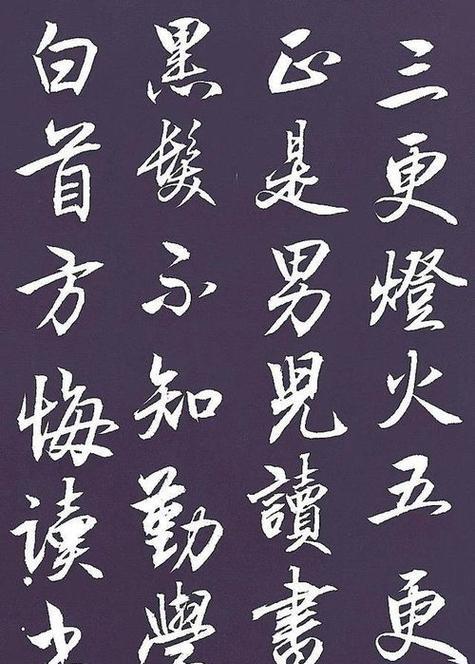 三更燈火五更
正是男兒讀書
黑髮不知勤學
白首方悔读书